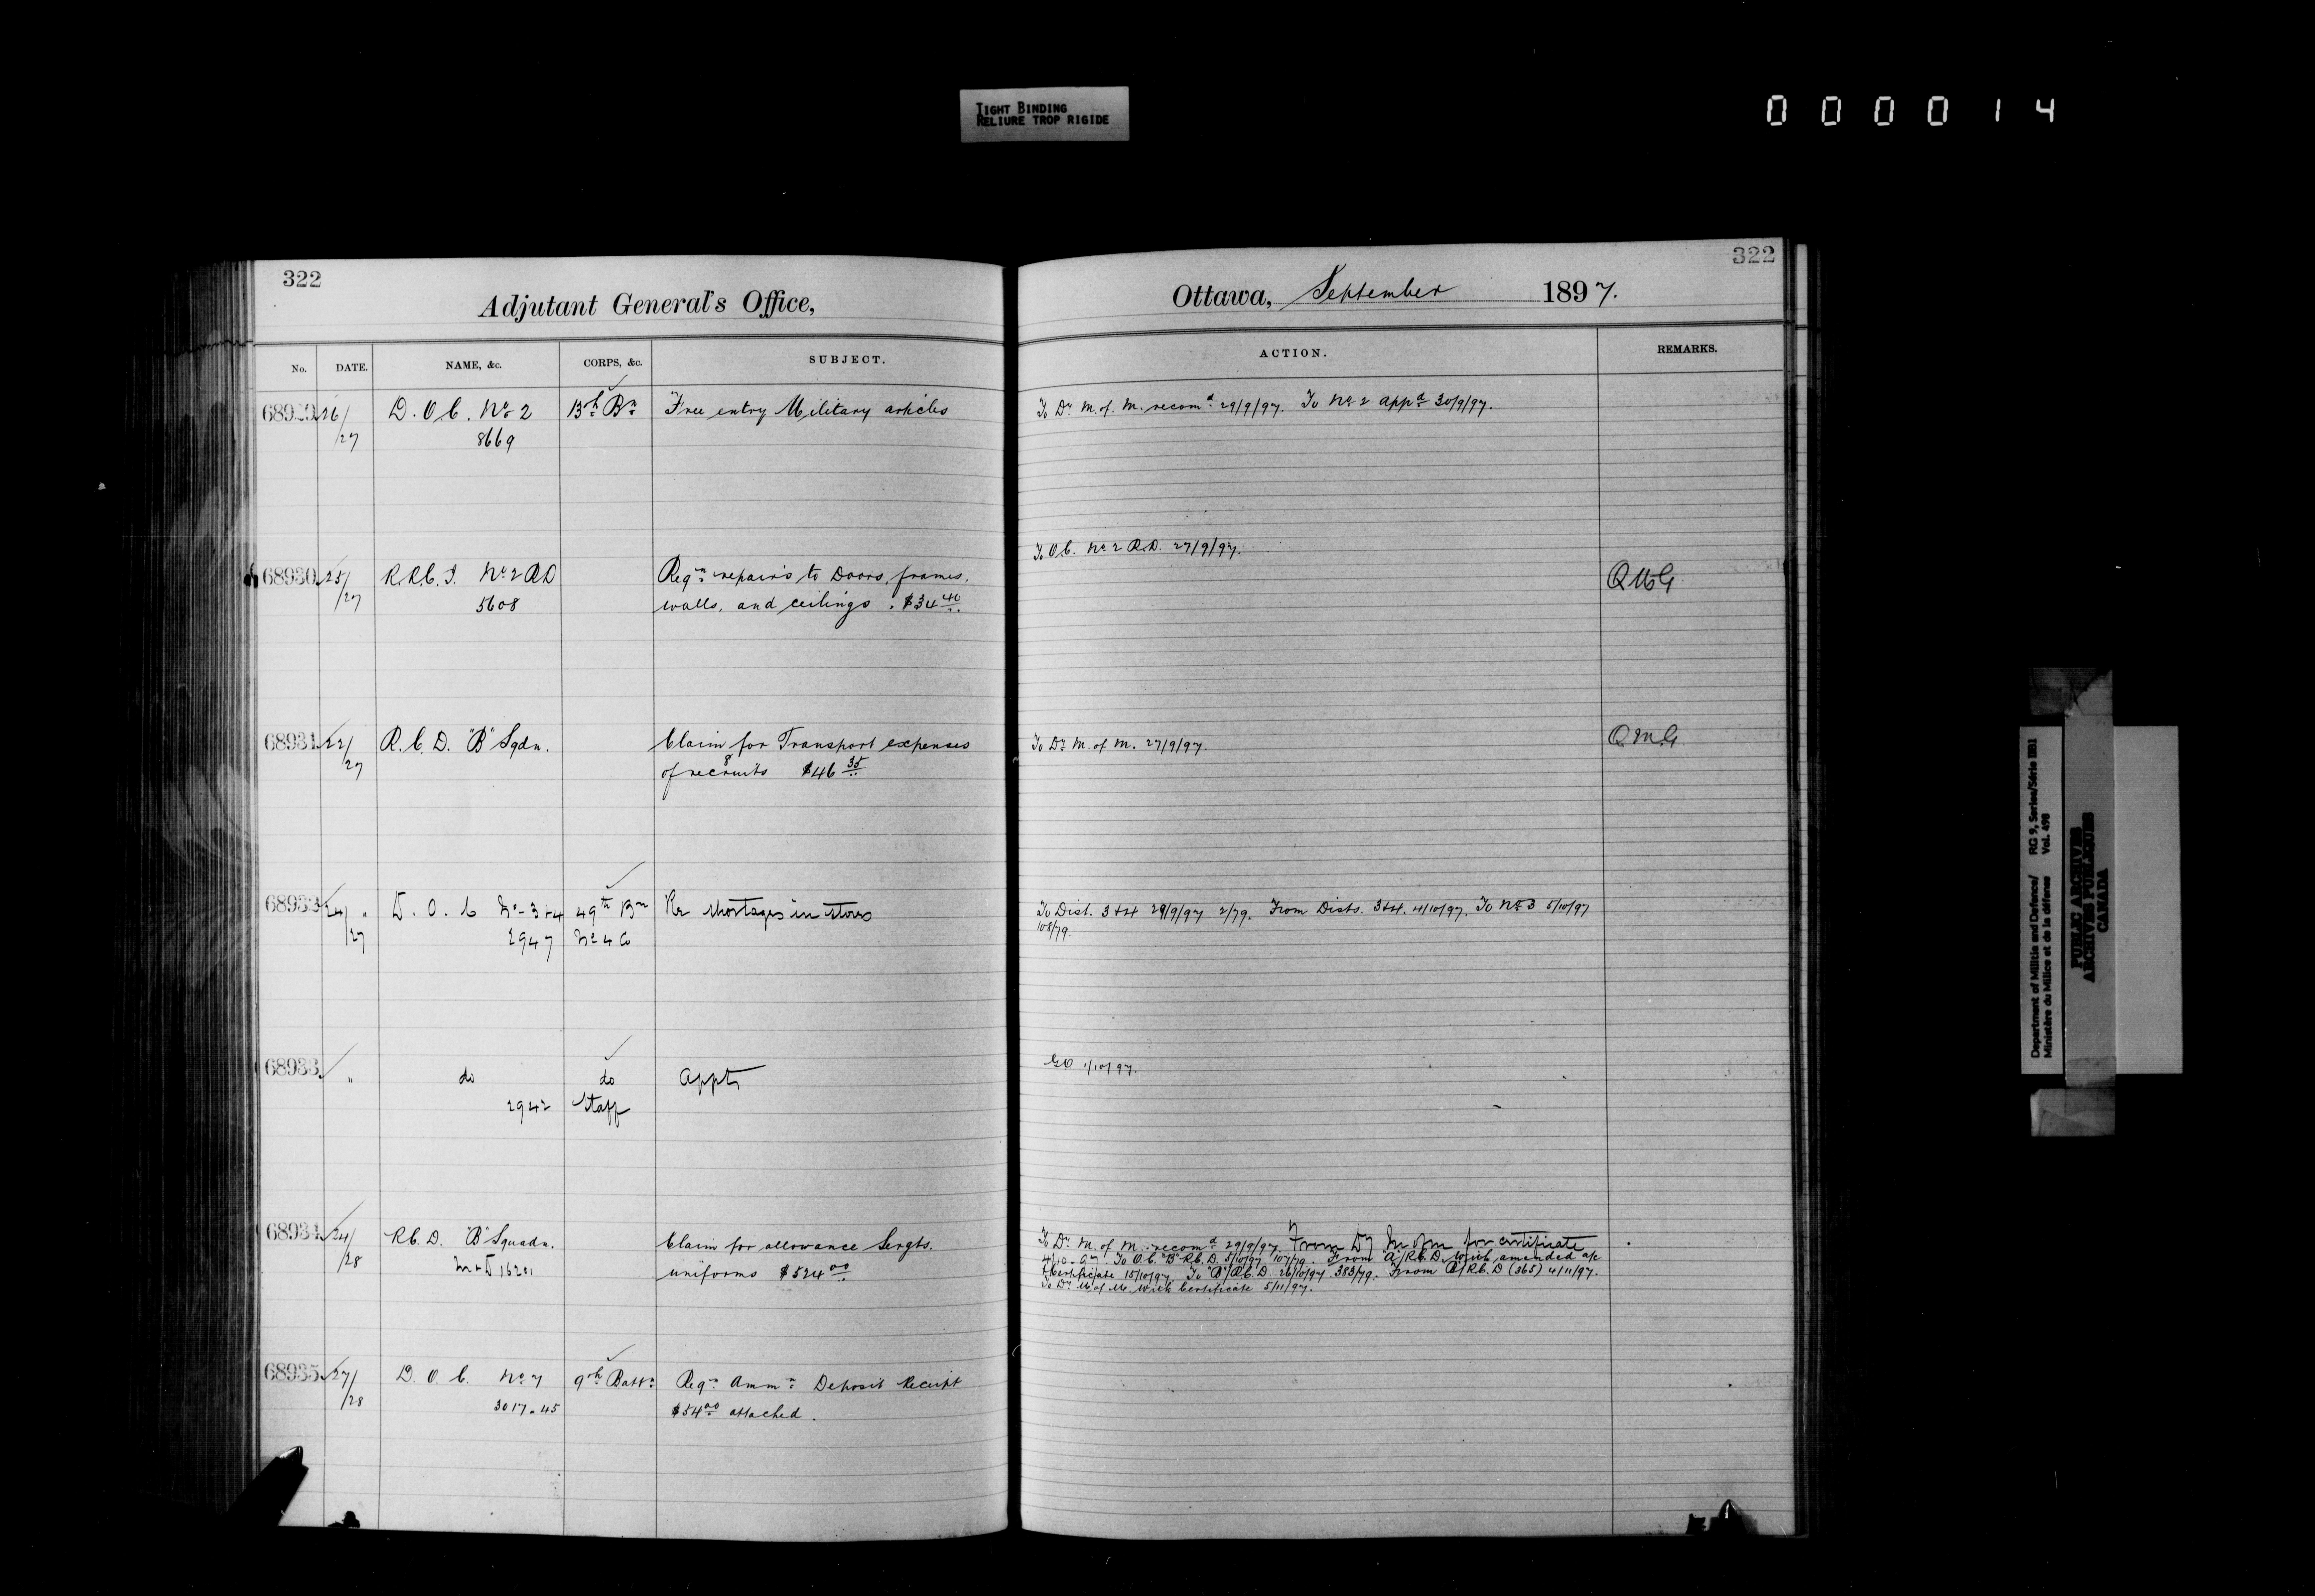 TIGHT BINDING
RELIURE TROP RIGIDE
000014
322
Adjutant General's Office,
No. DATE. NAME, &c. CORPS, &c. SUBJECT.
68929 26/27 D.O.C. No 2 13th Bn Free entry Military articles
8669
68930 25/27 R.R.C.I. No 2 R.D Reqn repairs to Doors, frames,
5608 walls, and ceilings. $34 40
68931 22/27 R.C.D. "B" Sqdn. Claim for Transport expenses
of 8 recruits $46 35
68932 24/27 " D.O.C No 3+4 49th Bn Re shortages in stores
2947 No 4 Co
68933 " do do Appts
2942 Staff
68934 24/28 R.C.D. "B" Squadn. Claim for allowance Sergts.
M+D 16201 uniforms $524 00
68935 27/28 D.O.C. No 7 9th Battn Reqn Ammn Deposit Receipt
3017.45 $54 00 attached.
322
Ottawa, September 1897.
ACTION. REMARKS.
To Dy M. of M. recomd 29/9/97. To No 2 appd 30/9/97.
To O.C. No 2 R.D. 27/9/97.
Q M G
To Dy M. of M. 27/9/97. Q.M.G
To Dist. 3+4 29/9/97 2/79. From Dists. 3+4. 4/10/97. To No 3 5/10/97
108/79.
G O 1/10/97.
To Dy M. of M. recomd 29/9/97. From Dy M of M for certificate
4/10-97. To O.C. "B" R.C.D. 5/10/97 107/79. From "A"/R.C.D. with amended a/c
+ Certificate 15/10/97. To "B"/R.C.D. 26/10/97 383/79. From "B"/R.C.D (365) 4/11/97.
To Dy M of M. with Certificate 5/11/97.
Department of Militia and Defence/ RG 9, Series/Série IIB1
Ministère du Milice et de la défense Vol. 498
PUBLIC ARCHIVES
ARCHIVES PUBLIQUES
CANADA